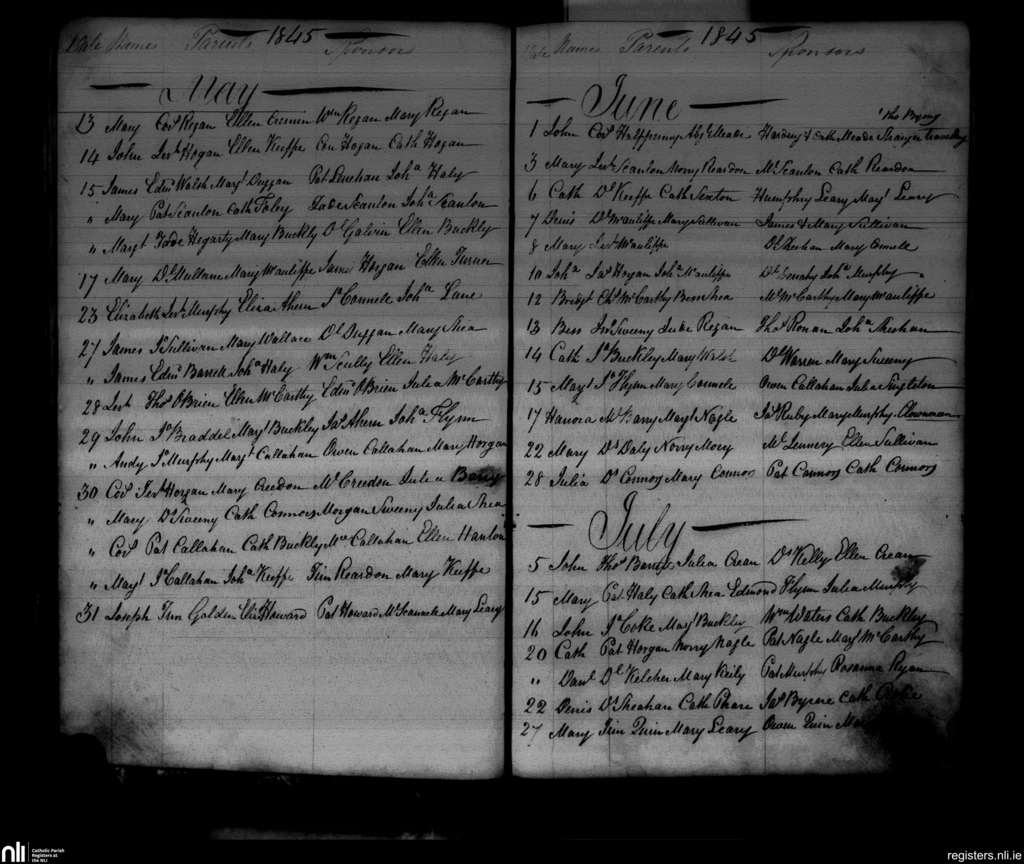 Date Names Parents 1845 Sponsors
May
13 Mary Cors Regan Ellen Wm Regan Mary Regan
14 John Jerh Hogan Ellen Keeffe Con Hogan Cath Hogan
15 James Edmd Walsh Margt Duggan Pat Linehan Joha Haly
" Mary Pat Scanlon Cath Foley Scanlon Joha Scanlon
" Margt Hegarty Mary Buckly Dl Galvin Ellen Buckley
17 Mary Dl Mullane Mary Wauliffe James Horgan Ellen Turner
23 Elizabeth Jerh Murphy Eliza Ahern Js Connell Joha Lane
27 James Js Sullivan Mary Wallace Dl Duggan Mary Shea
" James Edmd Barrett Joha Haly Wm Scully Ellen Haly
28 Jerh Thos OBrien Ellen McCarthy Edmd OBrien Julia McCarthy
29 John Js Braddel Margt Buckley Jas Ahern Joha Flynn
" Andy Js Murphy Margt Callahan Owen Callahan Mary Horgan
30 Cors Jerh Horgan Mary Creedon Ml Creedon Julia Barry
" Mary Ds Sweeny Cath Connors Morgan Sweeny Julia Shea
" Cors Pat Callahan Cath Buckley Callahan Ellen Hanlon
" Margt Js Callahan Joha Keeffe Tim Reardon Mary Keeffe
31 Joseph Tim Golden Eliz Howard Pat Howard Mary Leary
Date Names Parents 1845 Sponsors
June
Thos
1 John Cors Heffernan Meade Harding & Cath Meade Stranger travelling
3 Mary Jerh Scanlon Norry Reardon Ml Scanlon Cath Reardon
6 Cath Dl Keeffe Cath Sexton Humphry Leary Margt Leary
7 Denis Ds Wauliffe Mary Sullivan James & Mary Sullivan
8 Mary Jerh Wauliffe Dl Sheehan Mary Connell
10 Joha Jas Hogan Joha Wauliffe Joha Murphy
12 Bridgt Chs McCarthy Bess Shea Ml McCarthy Mary Wauliffe
13 Bess Jno Sweeny Regan Thos Ronan Joha Sheehan
14 Cath Js Buckley Mary Walsh Dl Warren Mary Sweeny
15 Margt Js Flynn Mary Connell Owen Callahan Julia Singleton
17 Hanora Ml Barry Margt Nagle Jas Ruby Mary Murphy
22 Mary Dl Daly Norry Mory Ml Lennery Ellen Sullivan
28 Julia Ds Connors Mary Connors Pat Connors Cath Connors
July
5 John Thos Barrett Julia Crean Ds Kelly Ellen Crean
15 Mary Pat Haly Cath Shea Edmond Flynn Julia Murphy
16 John Js Coke Margt Buckley Wm Waters Cath Buckley
20 Cath Pat Horgan Norry Nagle Pat Nagle Margt McCarthy
" Danl Dl Kelcher Mary Reily Pat Murphy Rosanna Ryan
22 Denis Ds Sheahan Cath Phare Jas Byrne Cath
27 Mary Tim Quin Mary Leary Owen Quin
nli Catholic Parish Registers at the NLI
registers.nli.ie